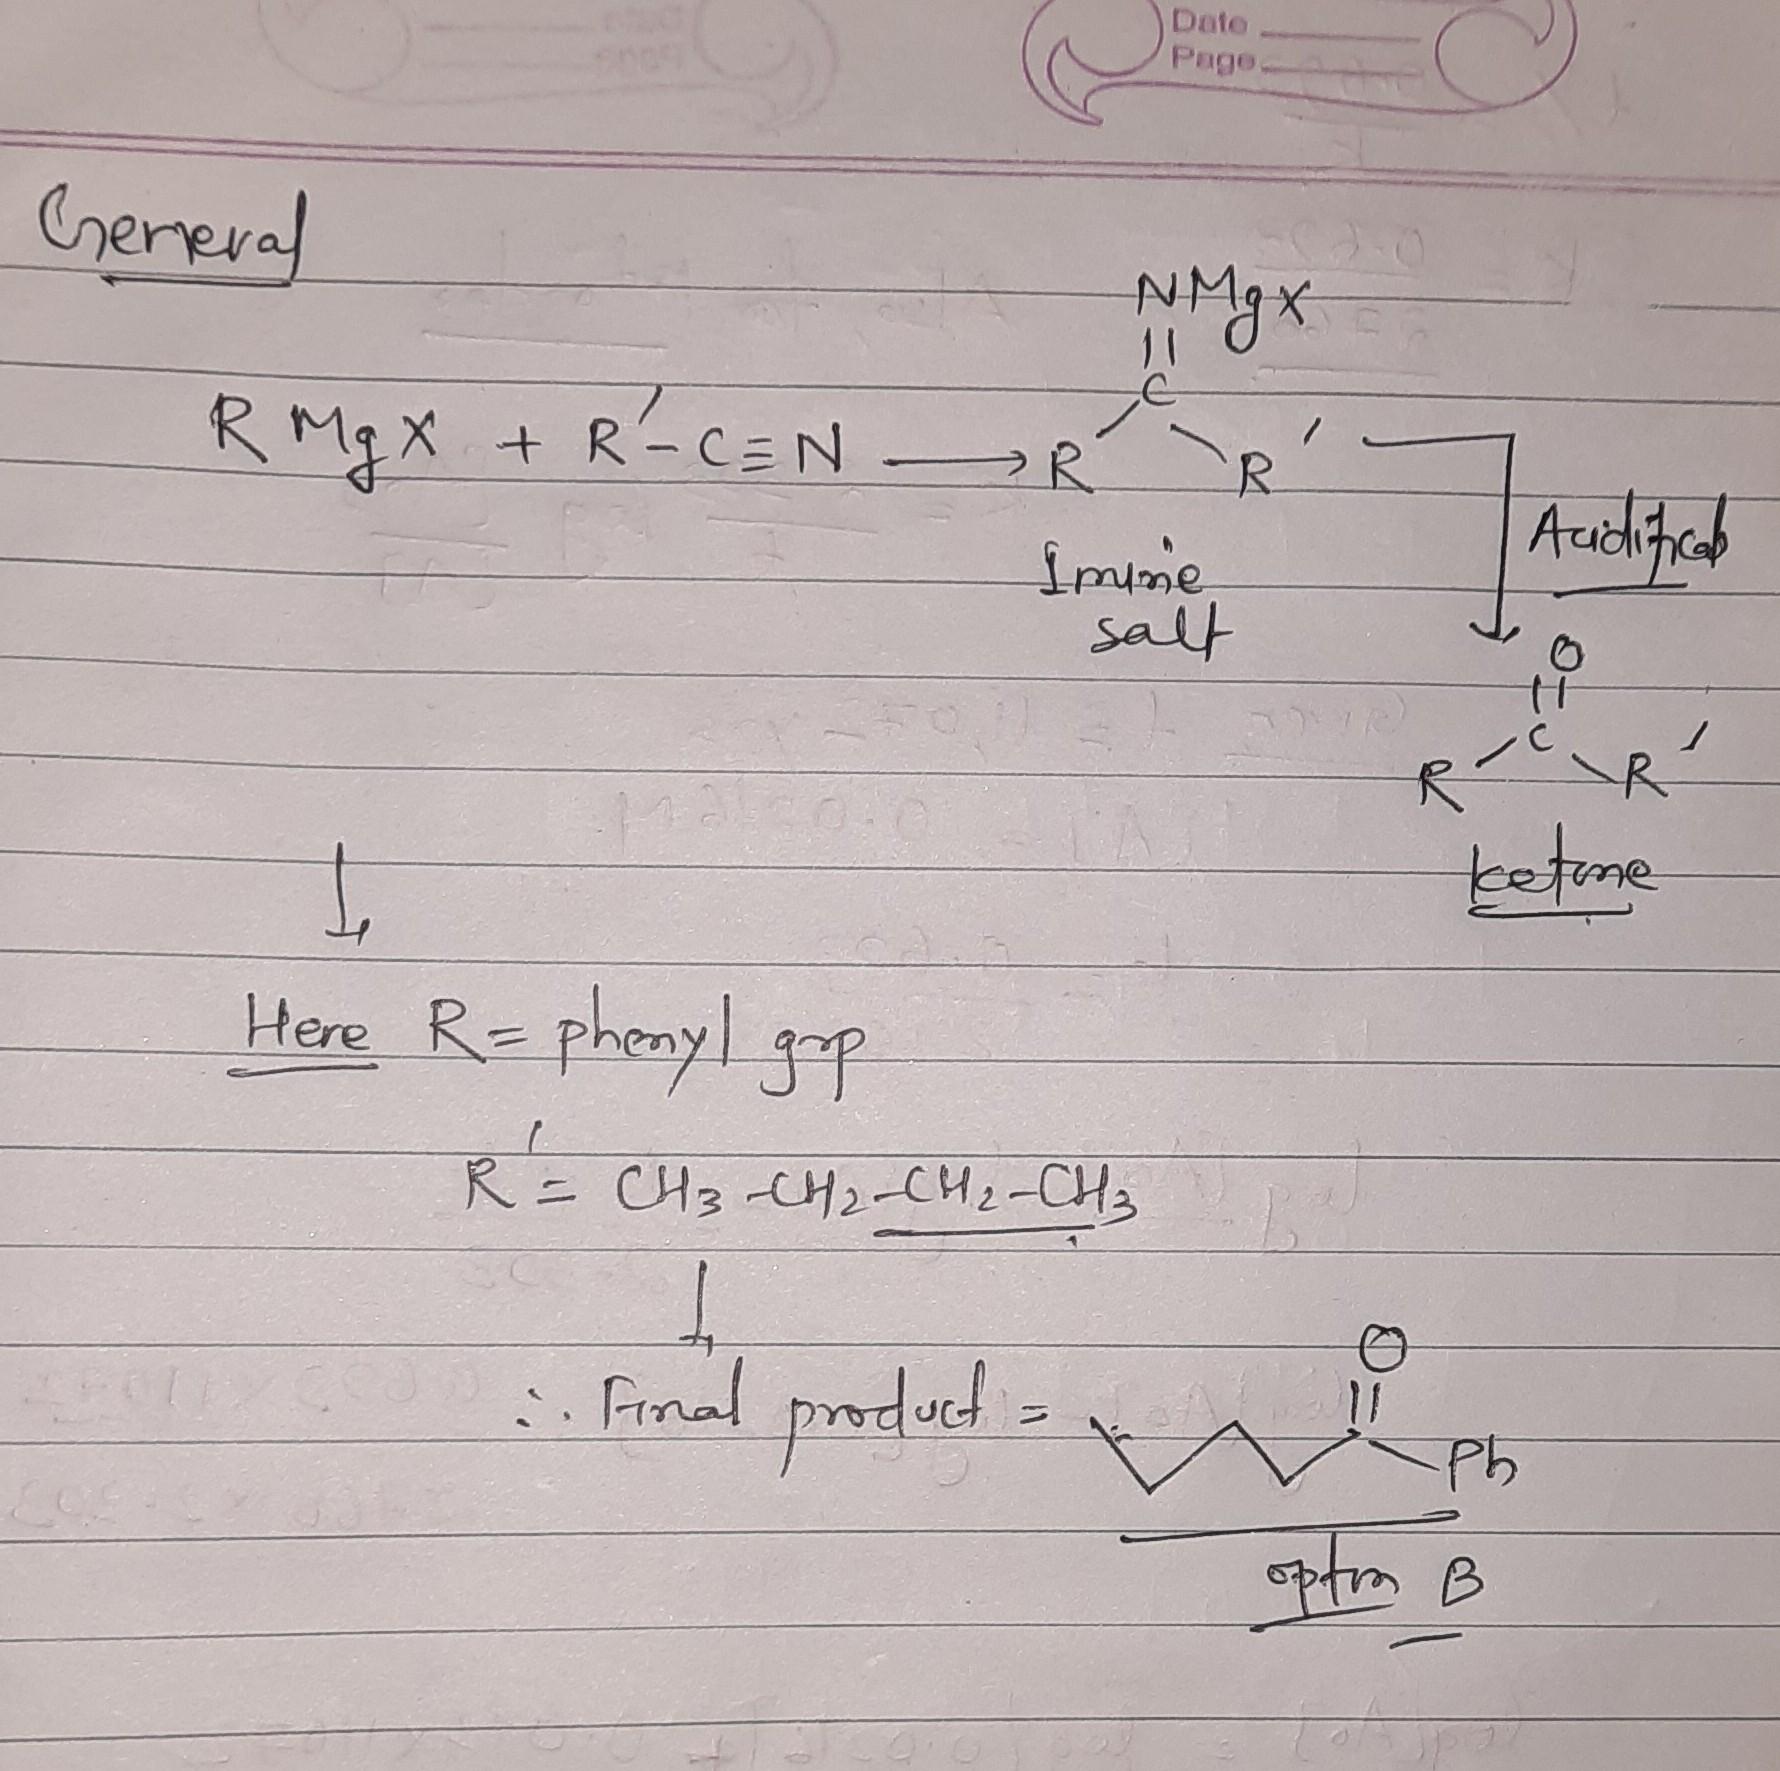 Date
Page
General
NMgX
||
C
R MgX + R'-C≡N → R R'
Imine
salt
Acidificatn
O
||
C
R R'
ketone
↓
Here R = phenyl grp
R' = CH3-CH2-CH2-CH3
↓
O
||
∴ Final product = Ph
optn B